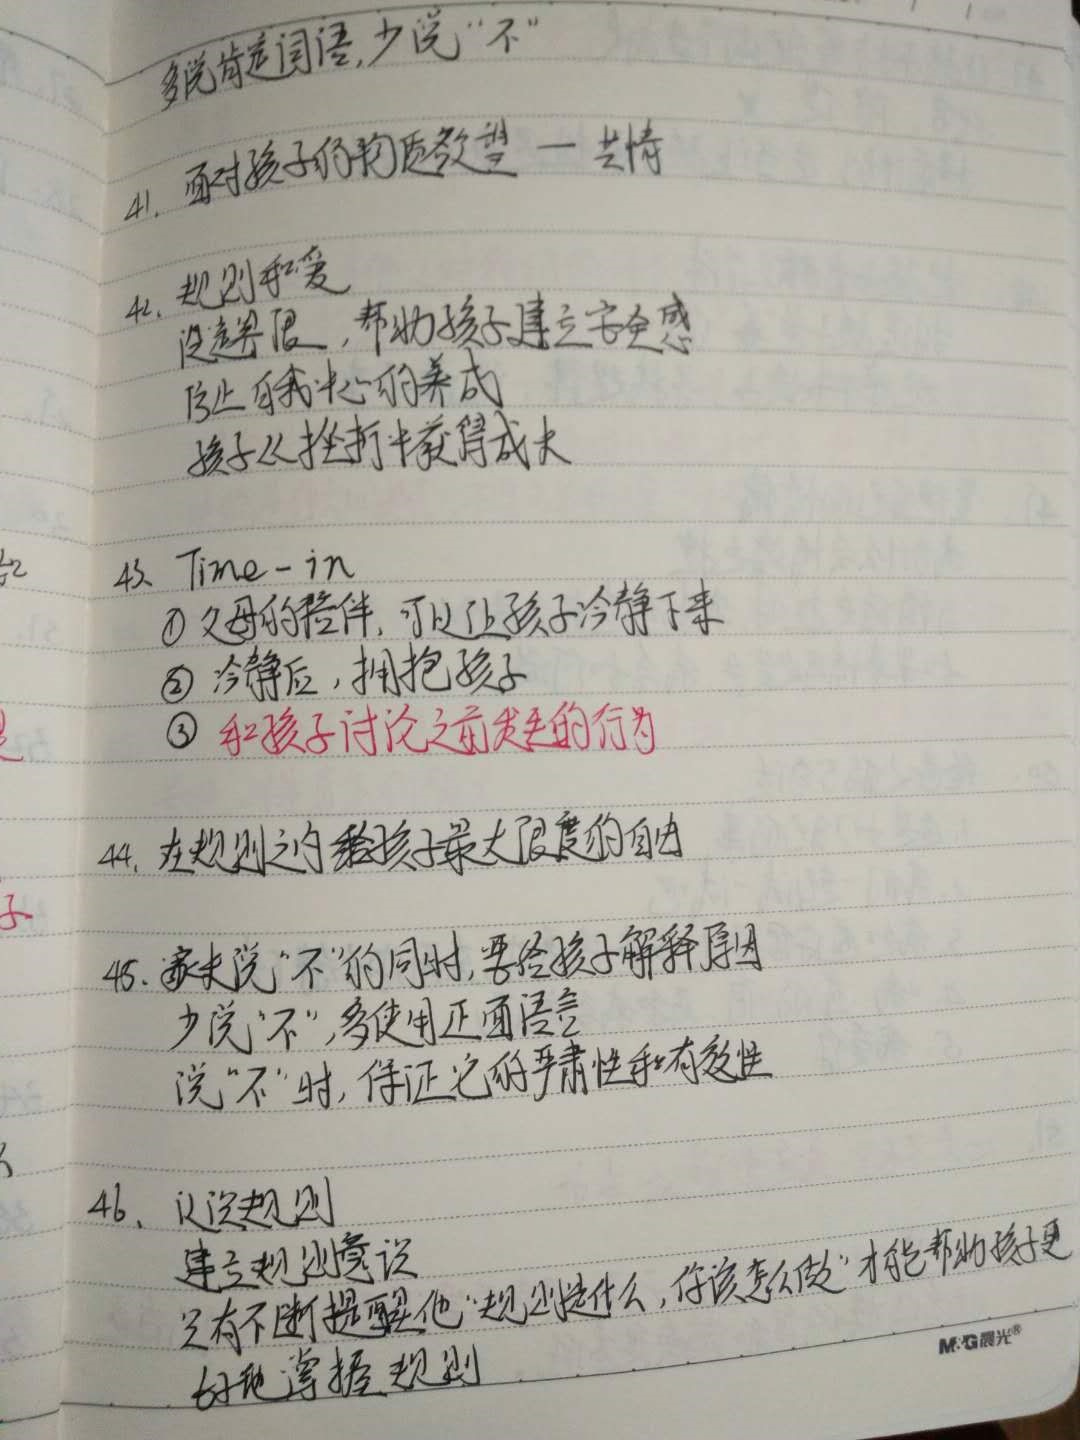 多说肯定词语,少说“不”
41. 面对孩子的物质欲望 — 共情
42. 规则和爱
设立界限,帮助孩子建立安全感
防止自我中心的养成
孩子从挫折中获得成长
43. Time-in
① 父母的陪伴,可以让孩子冷静下来
② 冷静后,拥抱孩子
③ 和孩子讨论之前发生的行为
44. 在规则之内给孩子最大限度的自由
45. 家长说“不”的同时,要给孩子解释原因
少说“不”,多使用正面语言
说“不”时,保证它的严肃性和有效性
46. 认识规则
建立规则意识
只有不断提醒他“规则是什么,你该怎么做”才能帮助孩子更
好地掌握规则
M&G晨光®